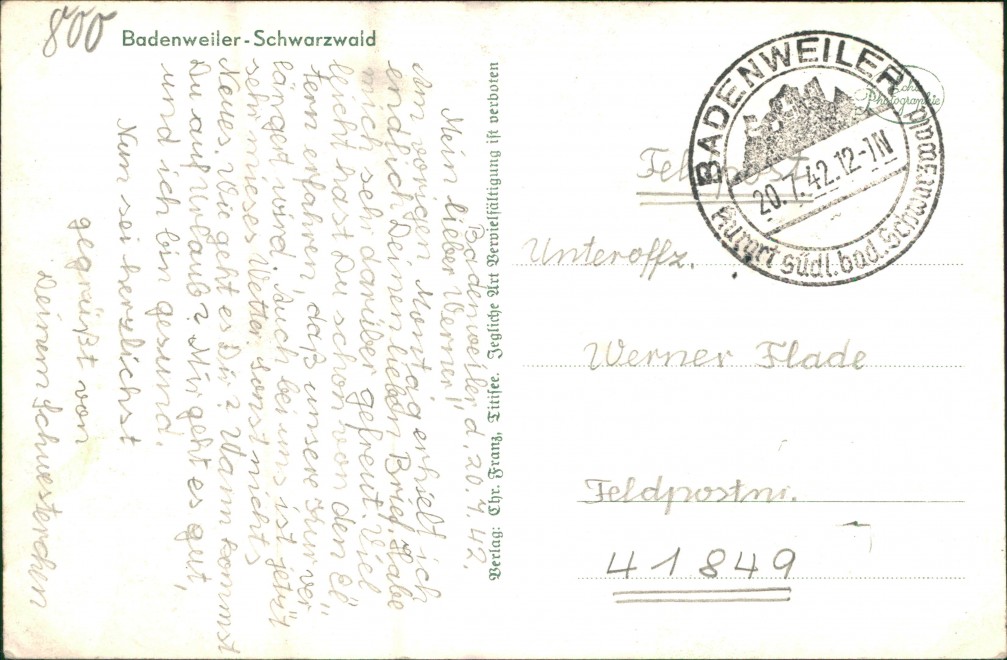 800
Badenweiler-Schwarzwald
Badenweiler d. 20.7.42.
Mein lieber Werner!
Am vorigen Montag erhielt ich
endlich Deinen lieben Brief. Habe
mich sehr darüber gefreut. Viel
leicht hast Du schon von den El
tern erfahren, daß unsere Kur ver
längert wird. Auch bei uns ist jetzt
sehr mieses Wetter, sonst nichts
Neues. Wie geht es Dir? Wann kommst
Du auf Urlaub? Mir geht es gut,
und ich bin gesund.
Nun sei herzlichst
gegrüßt von
Deinem Schwesterchen
Verlag: Chr. Franz, Titisee. Jegliche Art Vervielfältigung ist verboten
Echte
Photographie
BADENWEILER
20.7.42.12-1N
Kurort südl. bad. Schwarzwald
Feldpost
Unteroffz.
Werner Flade
Feldpostnr.
41849